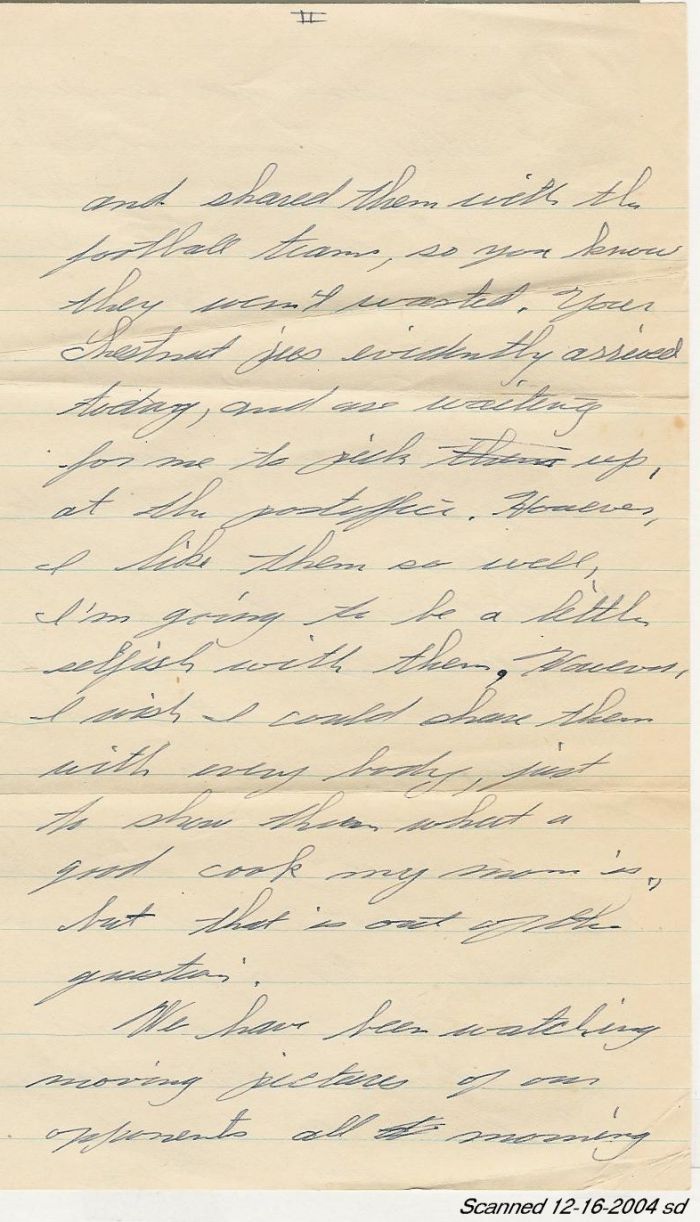 II
and shared them with the
football team, so you know
they weren't wasted. Your
Chestnut pies evidently arrived
today, and are waiting
for me to pick them up,
at the postoffice. However,
I like them so well,
I'm going to be a little
selfish with them. However,
I wish I could share them
with every body, just
to show them what a
good cook my mom is,
but that is out of the
question.
We have been watching
moving pictures of our
opponents all morning
Scanned 12-16-2004 sd